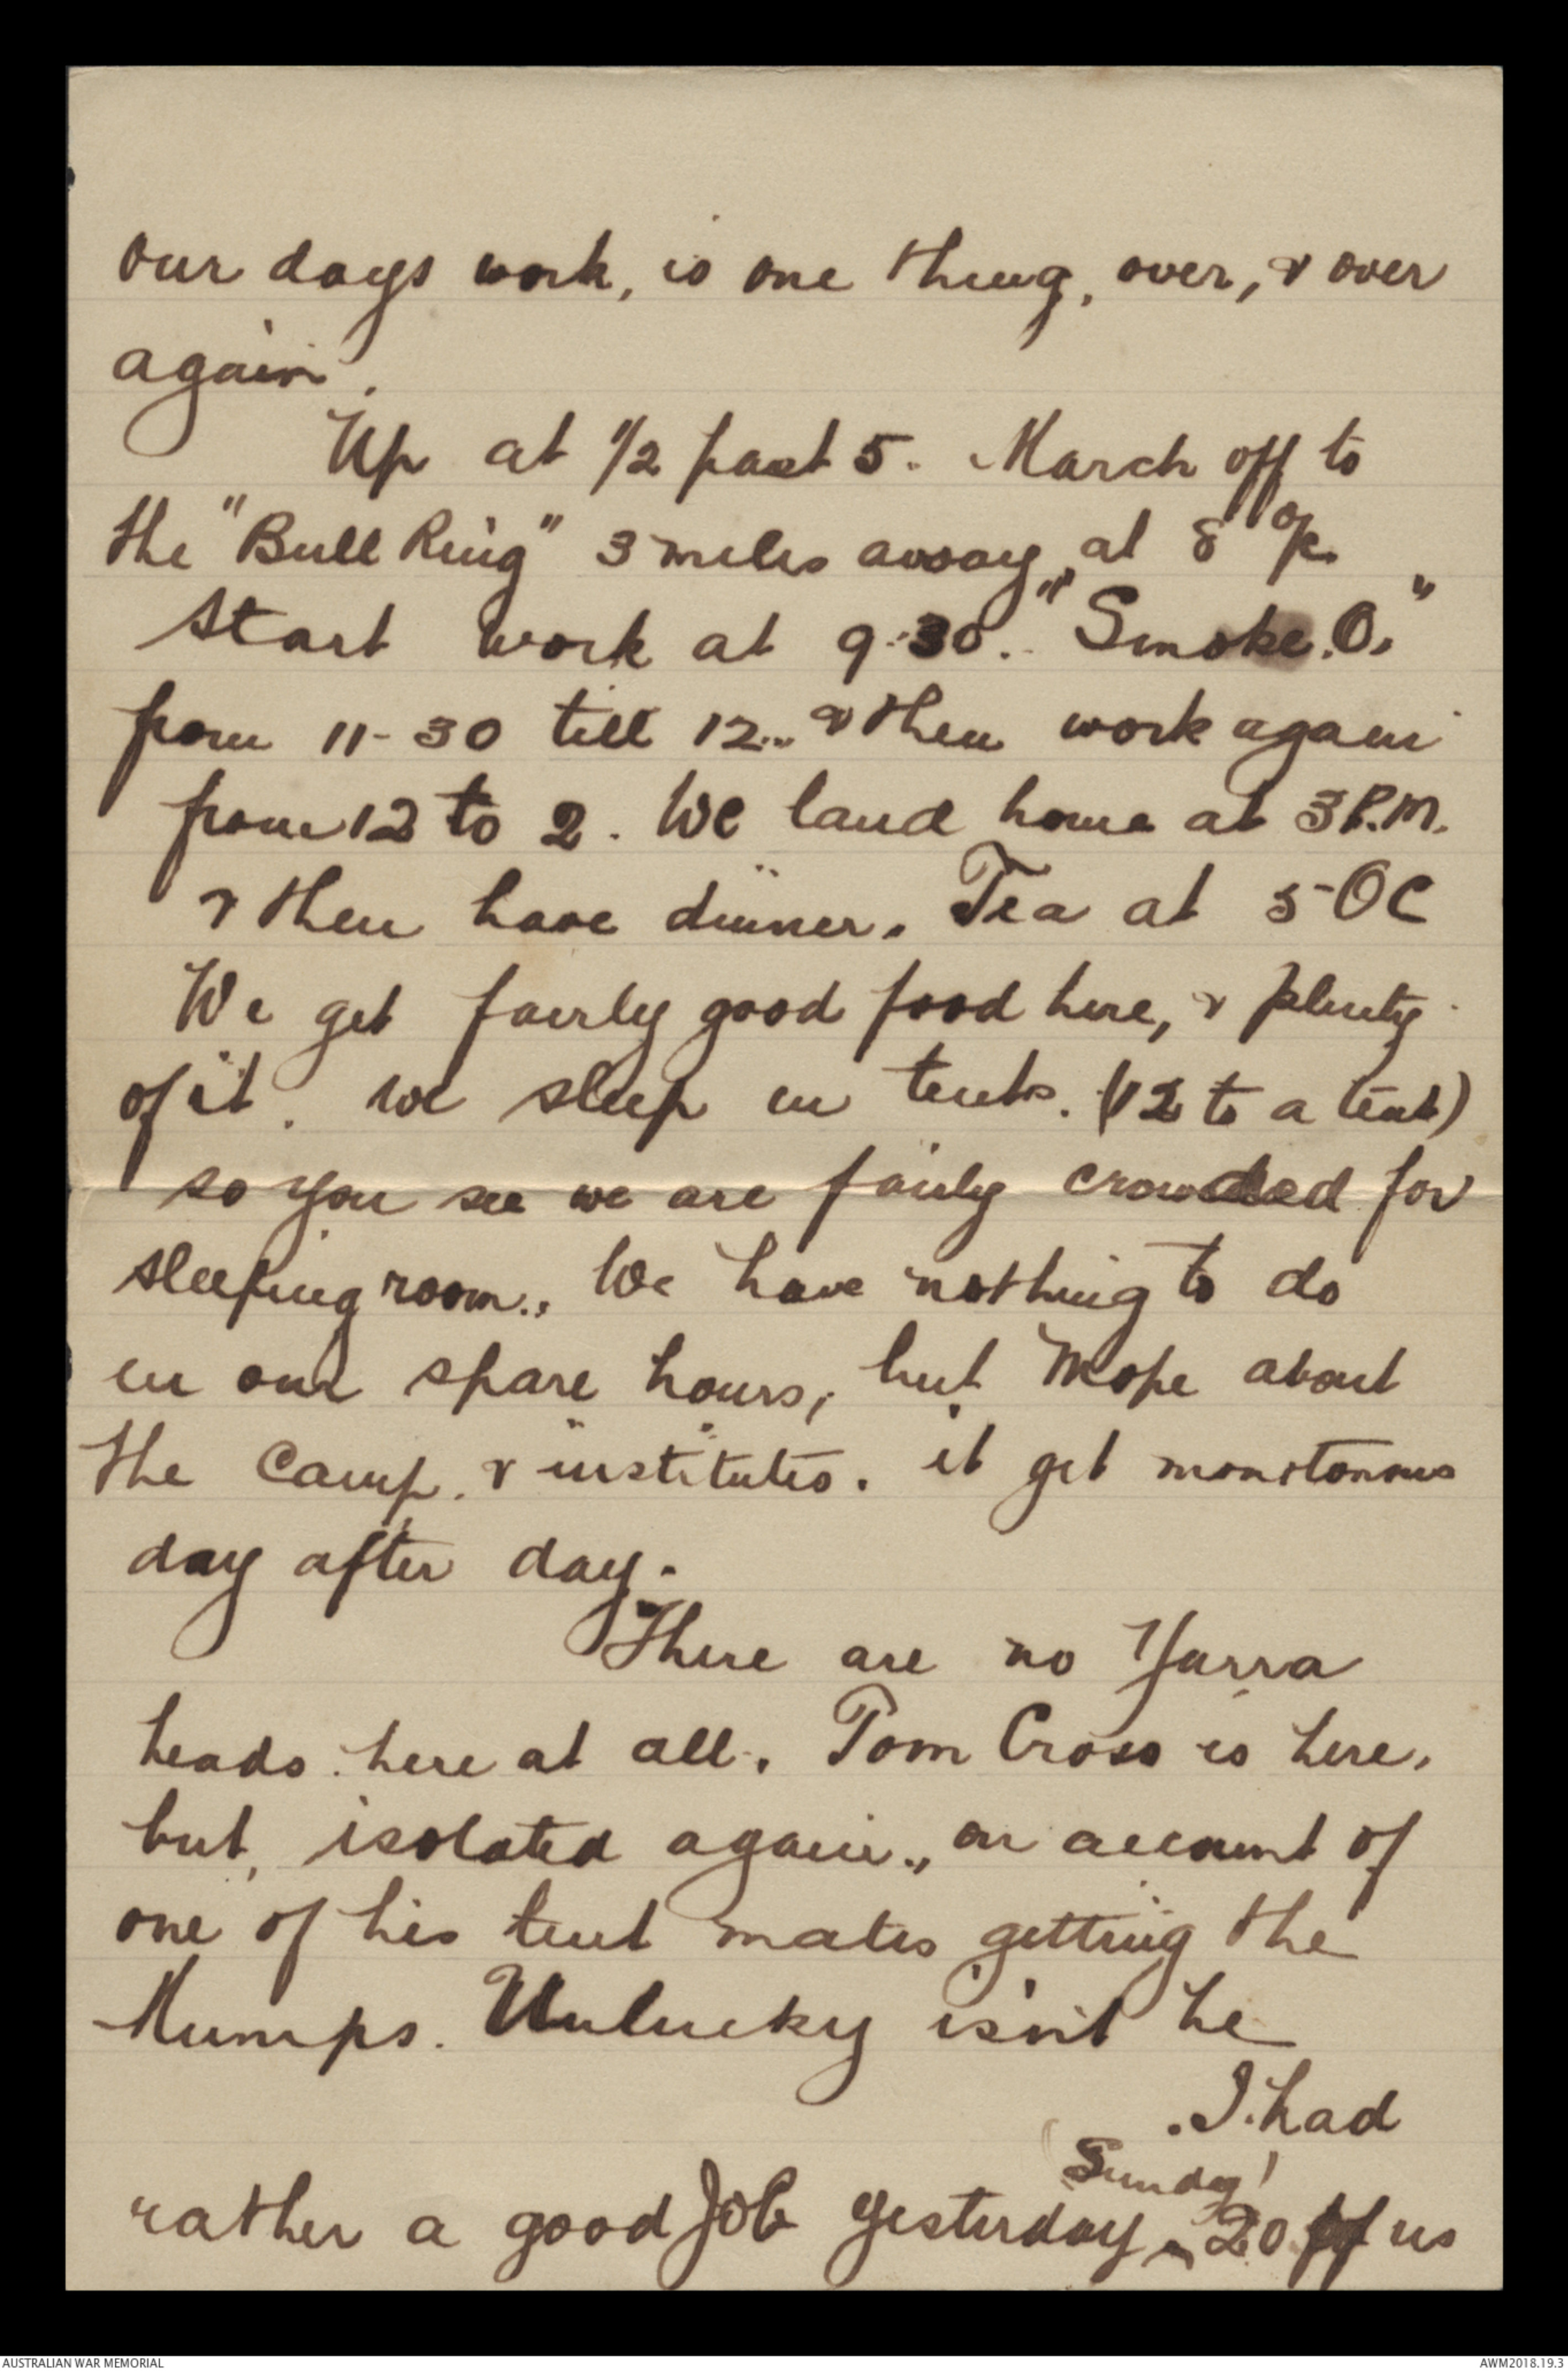 our days work, is one thing, over, & over
again.
Up at 1/2 past 5. March off to
the "Bull Ring" 3 miles away, at 8 o/c.
Start work at 9.30. "Smoke.O."
from 11-30 till 12.. & then work again
from 12 to 2. We land home at 3P.M.
& then have dinner. Tea at 5-OC
We get fairly good food here, & plenty
of it. We sleep in tents. (12 to a tent)
so you see we are fairly crowded for
sleeping room., We have nothing to do
in our spare hours, but Mope about
the Camp. & institutes. it get monotonous
day after day.
There are no Yarra
heads here at all. Tom Cross is here,
but, isolated again., on account of
one of his tent mates getting the
Mumps. Unlucky isn't he
.I had
(Sunday)
rather a good Job yesterday 20 of us
AUSTRALIAN WAR MEMORIAL
AWM2018.19.3